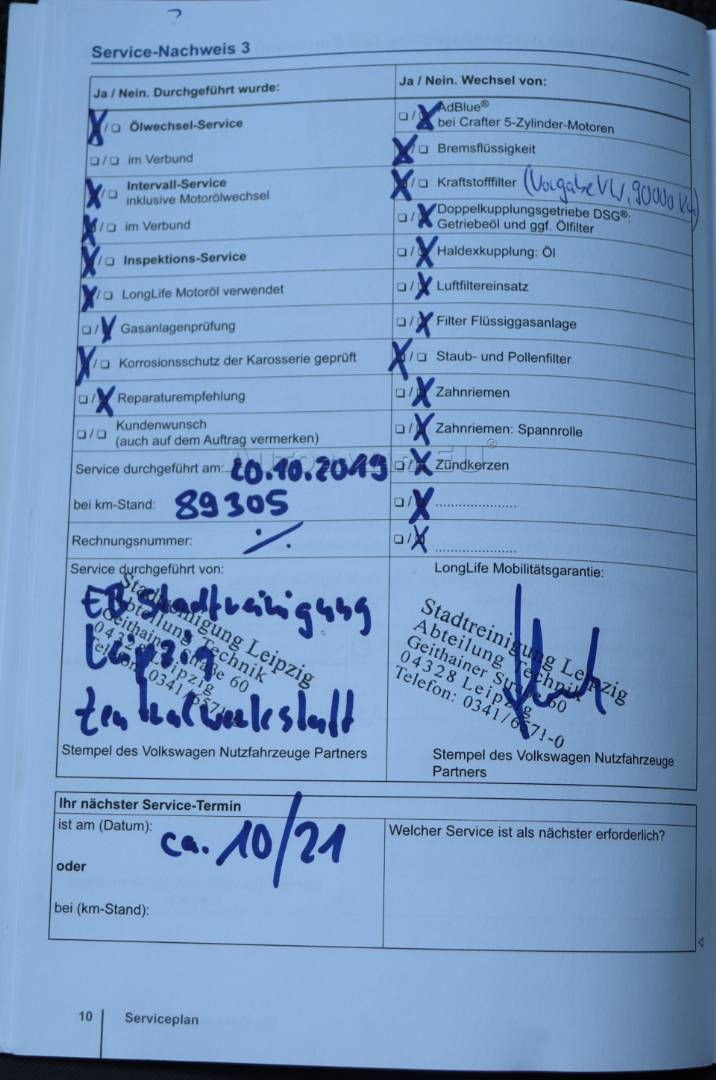 ?
Service-Nachweis 3
Ja / Nein. Durchgeführt wurde:
X/❏ Ölwechsel-Service
❏/❏ im Verbund
X/❏ Intervall-Service
inklusive Motorölwechsel
X/❏ im Verbund
X/❏ Inspektions-Service
X/❏ LongLife Motoröl verwendet
❏/X Gasanlagenprüfung
X/❏ Korrosionsschutz der Karosserie geprüft
❏/X Reparaturempfehlung
❏/❏ Kundenwunsch
(auch auf dem Auftrag vermerken)
Service durchgeführt am: 20.10.2019
bei km-Stand: 89305
Rechnungsnummer: ./.
Ja / Nein. Wechsel von:
❏/X AdBlue®
bei Crafter 5-Zylinder-Motoren
X/❏ Bremsflüssigkeit
X/❏ Kraftstofffilter (Vorgabe VW, 90000 km)
❏/X Doppelkupplungsgetriebe DSG®:
Getriebeöl und ggf. Ölfilter
❏/X Haldexkupplung: Öl
❏/X Luftfiltereinsatz
❏/X Filter Flüssiggasanlage
X/❏ Staub- und Pollenfilter
❏/X Zahnriemen
❏/X Zahnriemen: Spannrolle
❏/X Zündkerzen
❏/X ....................
❏/X ....................
Service durchgeführt von:
EB Stadtreinigung
Leipzig
Zentralwerkstatt
Stadtreinigung Leipzig
Abteilung Technik
Geithainer Straße 60
04328 Leipzig
Telefon: 0341/6571
Stempel des Volkswagen Nutzfahrzeuge Partners
LongLife Mobilitätsgarantie:
Stadtreinigung Leipzig
Abteilung Technik
Geithainer Str. 60
04328 Leipzig
Telefon: 0341/6571-0
Stempel des Volkswagen Nutzfahrzeuge
Partners
Ihr nächster Service-Termin
ist am (Datum): ca. 10/21
oder
bei (km-Stand):
Welcher Service ist als nächster erforderlich?
10 Serviceplan